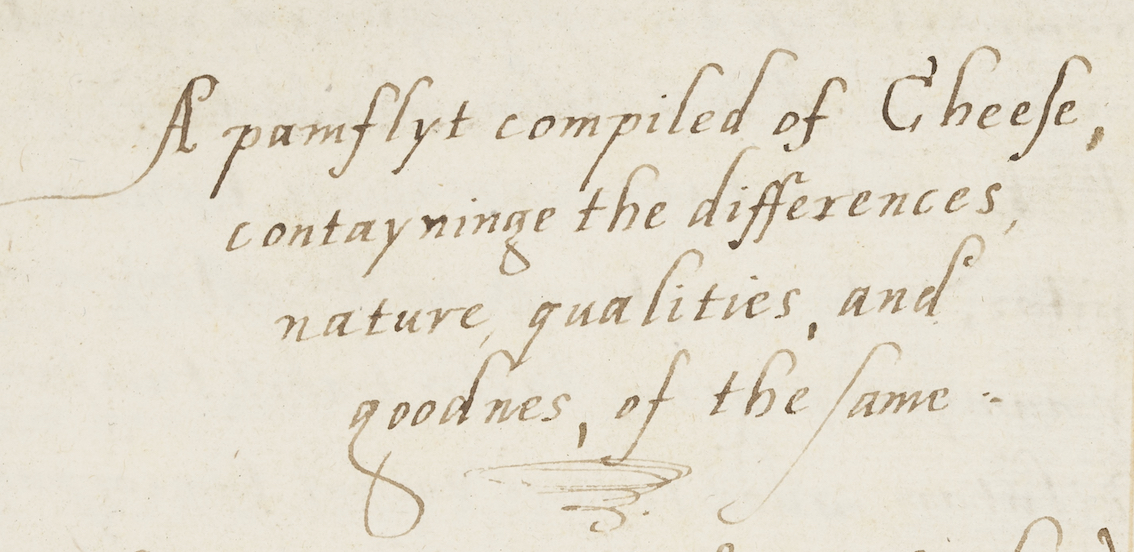 A pamflyt compiled of Cheeſe,
contayninge the differences,
nature, qualities, and
goodnes, of the ſame